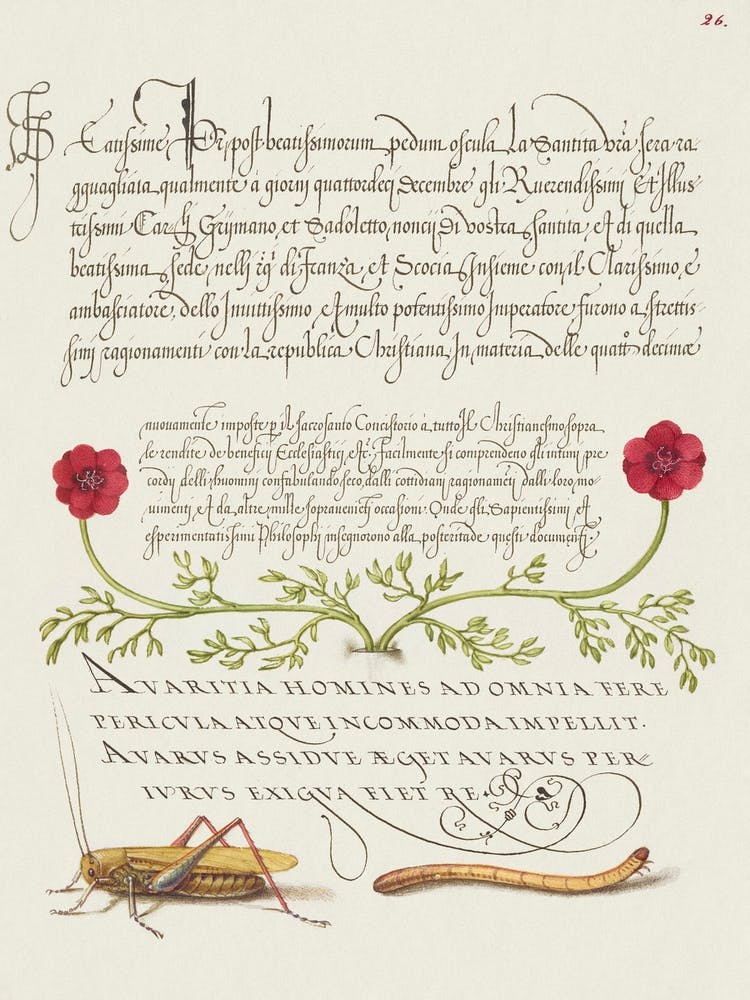 26.
Eatissime, Pr, post beatissimorum pedum oscula La Santita vrã sera ra-
gguagliata qualmente à giorni quattordeci Decembre gli Reuerendissimi Et Illus-
trissimi Car.li Grijmano, et Sadoletto, noncij Di vostra santita, et di quella
beatissima sede, nelli di Franza, et Scocia, Insieme con il Clarissimo, e
ambasciatore, dello Inuittissimo, et multo potentissimo Imperatore furono a strettis-
simj ragionamenti con La republica Christiana, In materia delle quatt.o decimæ
nuouamente imposte p il sacrosanto Concistorio à tutto Il Christianesmo sopra
le rendite de beneficij Ecclesiastici etc. Facilmente si comprendeno gli intimj pre
cordij delli huomini confabulando seco, dalli cottidiani ragionamēti dalli loro mo-
uimenti et da altre mille soprauenēti occasioni. Onde gli Sapientissimi et
esperimentatissimi Philosophj insegnorono alla posteritade questi documentj.
AVARITIA HOMINES AD OMNIA FERE
PERICVLA ATQVE INCOMMODA IMPELLIT.
AVARVS ASSIDVE ÆGET AVARVS PER-
IVRVS EXIGVA FIET RE